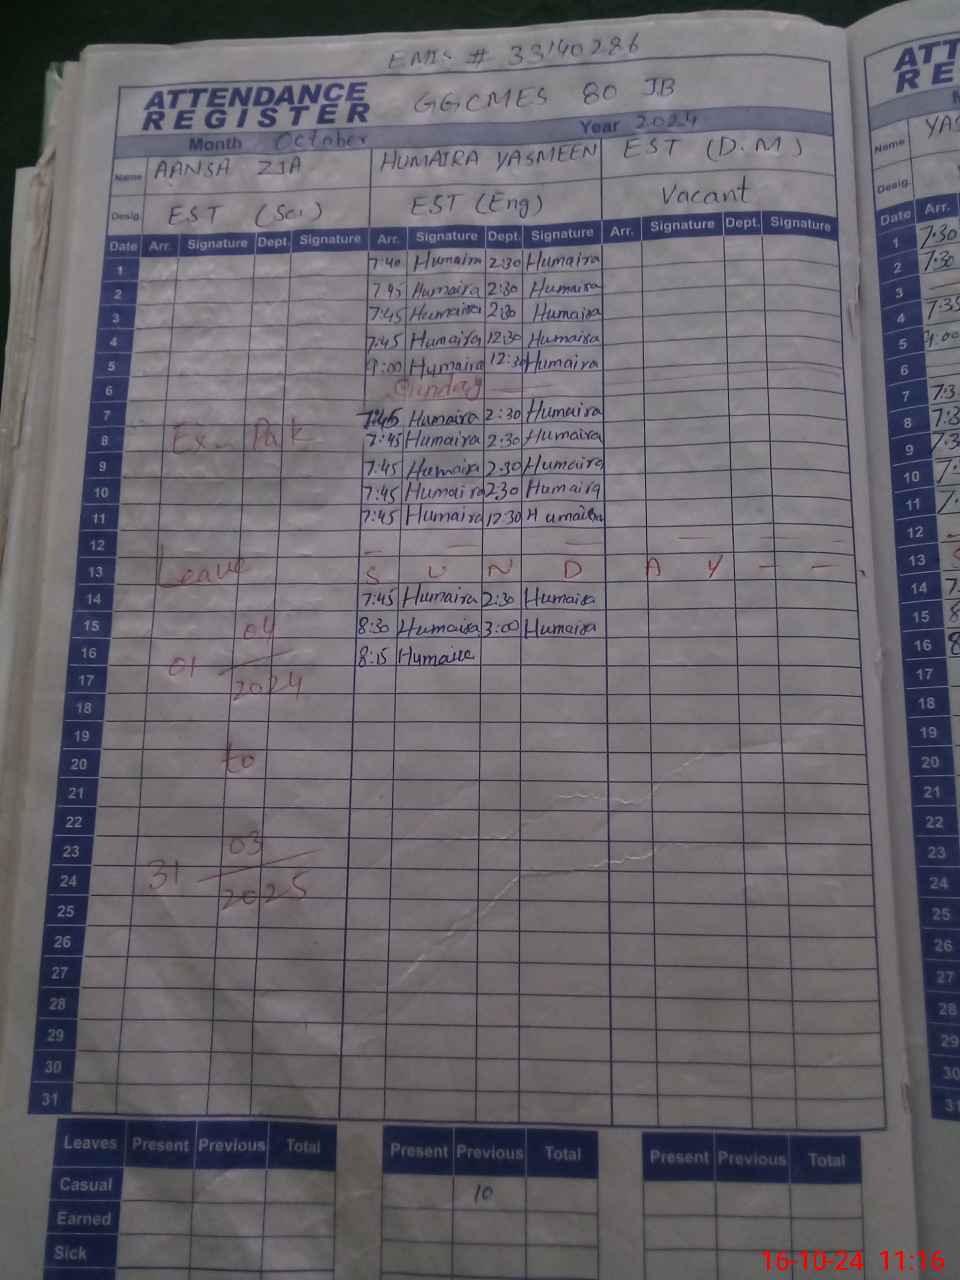 EMIS # 33140286
ATTENDANCE REGISTER GGCMES 80 JB
Month October Year 2024
Name AANSA ZIA HUMAIRA YASMEEN EST (D.M)
Desig. EST (Sci) EST (Eng) Vacant
Date Arr. Signature Dept. Signature Arr. Signature Dept. Signature Arr. Signature Dept. Signature
1 7:40 Humaira 2:30 Humaira
2 7:45 Humaira 2:30 Humaira
3 7:45 Humaira 2:30 Humaira
4 7:45 Humaira 12:30 Humaira
5 9:00 Humaira 12:30 Humaira
6 Sunday
7 7:45 Humaira 2:30 Humaira
8 Ex. Pak 7:45 Humaira 2:30 Humaira
9 7:45 Humaira 2:30 Humaira
10 7:45 Humaira 2:30 Humaira
11 7:45 Humaira 12:30 Humaira
12
13 Leave S U N D A Y
14 7:45 Humaira 2:30 Humaira
15 04 8:30 Humaira 3:00 Humaira
16 01 8:15 Humaira
17 2024
18
19
20 to
21
22
23 03
24 31
25 2025
26
27
28
29
30
31
Leaves Present Previous Total Present Previous Total Present Previous Total
Casual 10
Earned
Sick
ATT
RE
Name YAS
Desig.
Date Arr.
1 7:30
2 7:30
3
4 7:35
5 9:00
6
7 7:3
8 7:3
9 7:3
10 7:
11 7.
12
13 S
14 7:
15 8
16 8
17
18
19
20
21
22
23
24
25
26
27
28
29
30
31
16-10-24 11:16